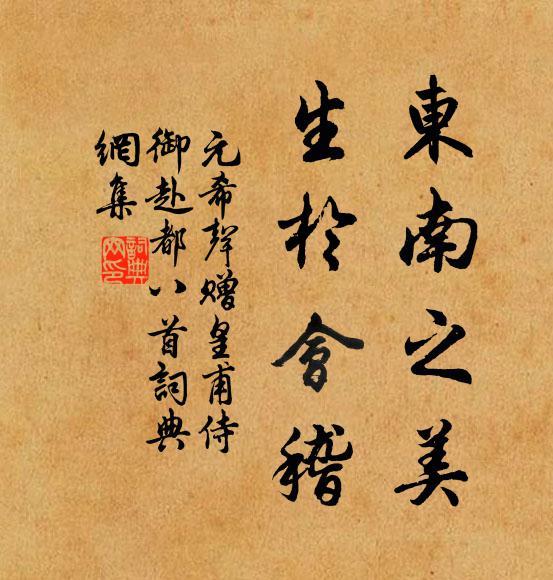 東南之美
生於會稽
元希聲贈皇甫侍
御赴都八首詞典
網集
詞典
網印